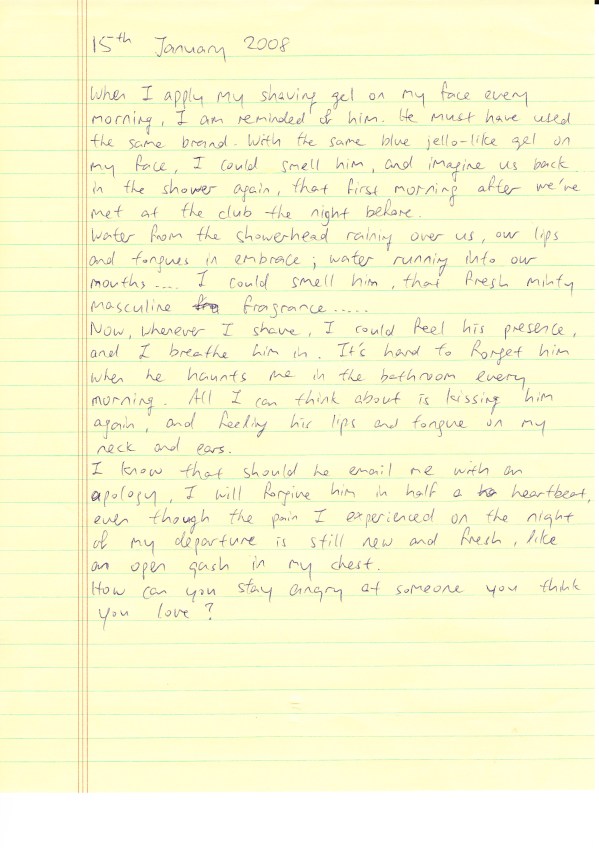 15th January 2008
When I apply my shaving gel on my face every
morning, I am reminded of him. He must have used
the same brand. With the same blue jello-like gel on
my face, I could smell him, and imagine us back
in the shower again, that first morning after we've
met at the club the night before.
Water from the showerhead raining over us, our lips
and tongues in embrace; water running into our
mouths.... I could smell him, that fresh minty
masculine fragrance.....
Now, whenever I shave, I could feel his presence,
and I breathe him in. It's hard to forget him
when he haunts me in the bathroom every
morning. All I can think about is kissing him
again, and feeling his lips and tongue on my
neck and ears.
I know that should he email me with an
apology, I will forgive him in half a heartbeat,
even though the pain I experienced on the night
of my departure is still new and fresh, like
an open gash in my chest.
How can you stay angry at someone you think
you love?